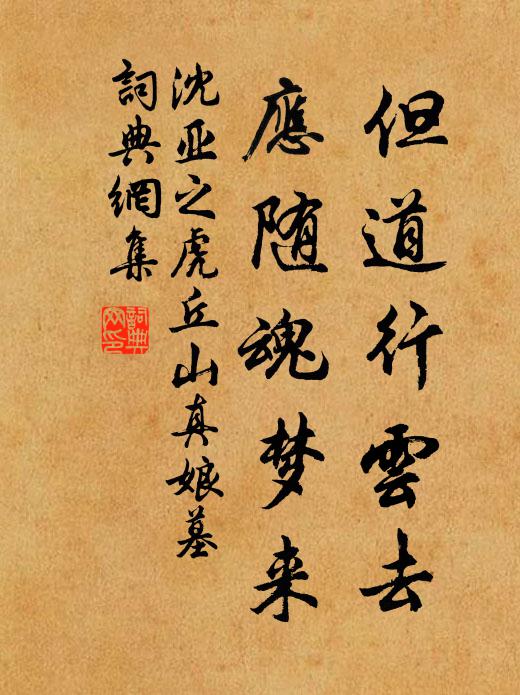 但道行雲去
應随魂梦来
沈亚之虎丘山真娘墓
詞典網集
詞典網印